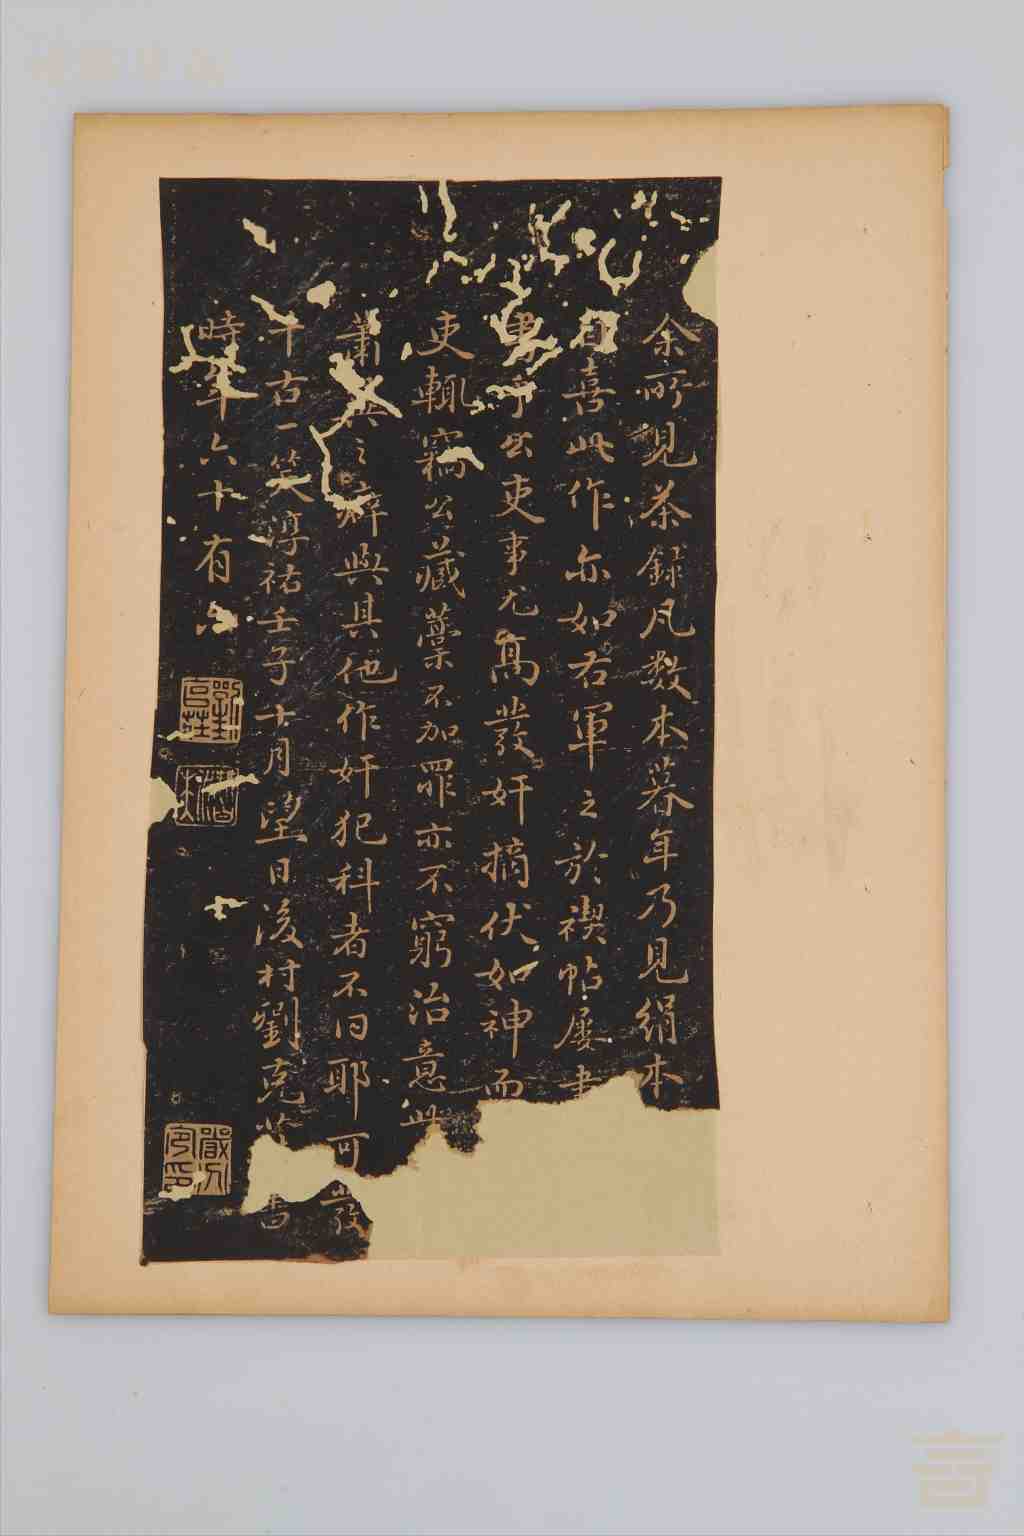 余所見茶録凡数本暮年乃見絹本
自喜此作亦如右軍之於禊帖屢書
乎公吏事尤髙發奸摘伏如神而
吏輒竊公藏藁不加罪亦不窮治意此
蕭之癖與其他作奸犯科者不同耶可發
千古一笑淳祐壬子十月望日後村劉克莊書
時年六十有六